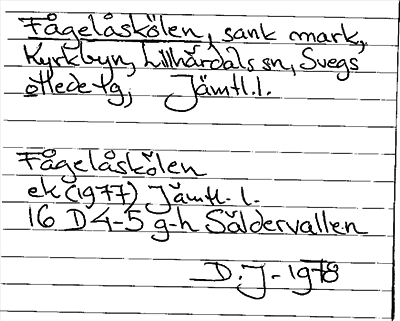 Fågelåskölen, sank mark,
Kyrkbyn, Lillhärdals sn, Svegs
Jämtl.l.
Fågelåskölen
ek (1977) Jämtl. l.
16 D 4-5 g-h Säldervallen
D.J - 1978